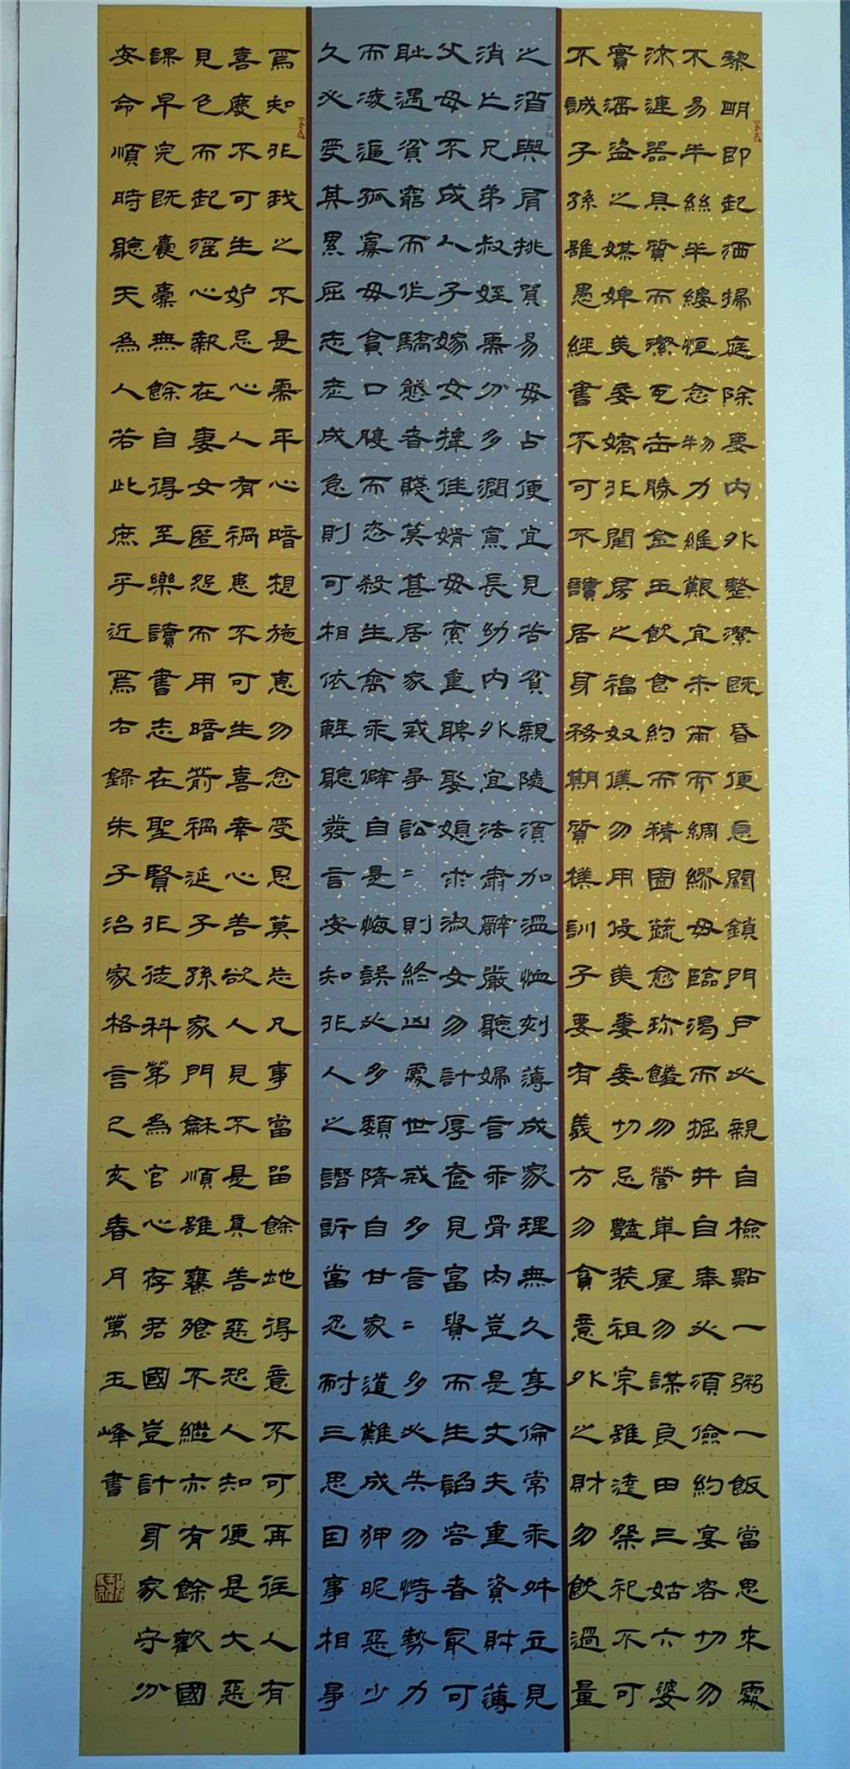 黎明即起洒掃庭除要内外整潔既昏便息關鎖門户必親自檢點一粥一飯當思來處
不易半絲半縷恒念物力維艱宜未雨而綢繆毋臨渴而掘井自奉必須儉約宴客切勿
流連器具質而潔瓦缶勝金玉飲食約而精園蔬愈珍饈勿營華屋勿謀良田三姑六婆
實淫盜之媒婢美妾嬌非閨房之福奴僕勿用俊美妻妾切忌豔裝祖宗雖遠祭祀不可
不誠子孫雖愚經書不可不讀居身務期質樸訓子要有義方勿貪意外之財勿飲過量
之酒與肩挑貿易毋占便宜見苦貧親鄰須加溫恤刻薄成家理無久享倫常乖舛立見
消亡兄弟叔姪需分多潤寡長幼内外宜法肅辭嚴聽婦言乖骨肉豈是丈夫重資財薄
父母不成人子嫁女擇佳婿毋索重聘娶媳求淑女勿計厚奩見富貴而生諂容者最可
恥遇貧窮而作驕態者賤莫甚居家戒爭訟々則終凶處世戒多言々多必失勿恃勢力
而凌逼孤寡毋貪口腹而恣殺生禽乖僻自是悔誤必多頹隋自甘家道難成狎昵惡少
久必受其累屈志老成急則可相依輕聽發言安知非人之譖訴當忍耐三思因事相爭
焉知非我之不是需平心暗想施惠勿念受恩莫忘凡事當留餘地得意不可再往人有
喜慶不可生妒忌心人有禍患不可生喜幸心善欲人見不是真善惡恐人知便是大惡
見色而起淫心報在妻女匿怨而用暗箭禍延子孫家門龢順雖饔飧不繼亦有餘歡國
課早完既囊橐無餘自得至樂讀書志在聖賢非徒科第為官心存君國豈計身家守分
安命順時聽天為人若此庶乎近焉右錄朱子治家格言己亥春月萬玉峰書